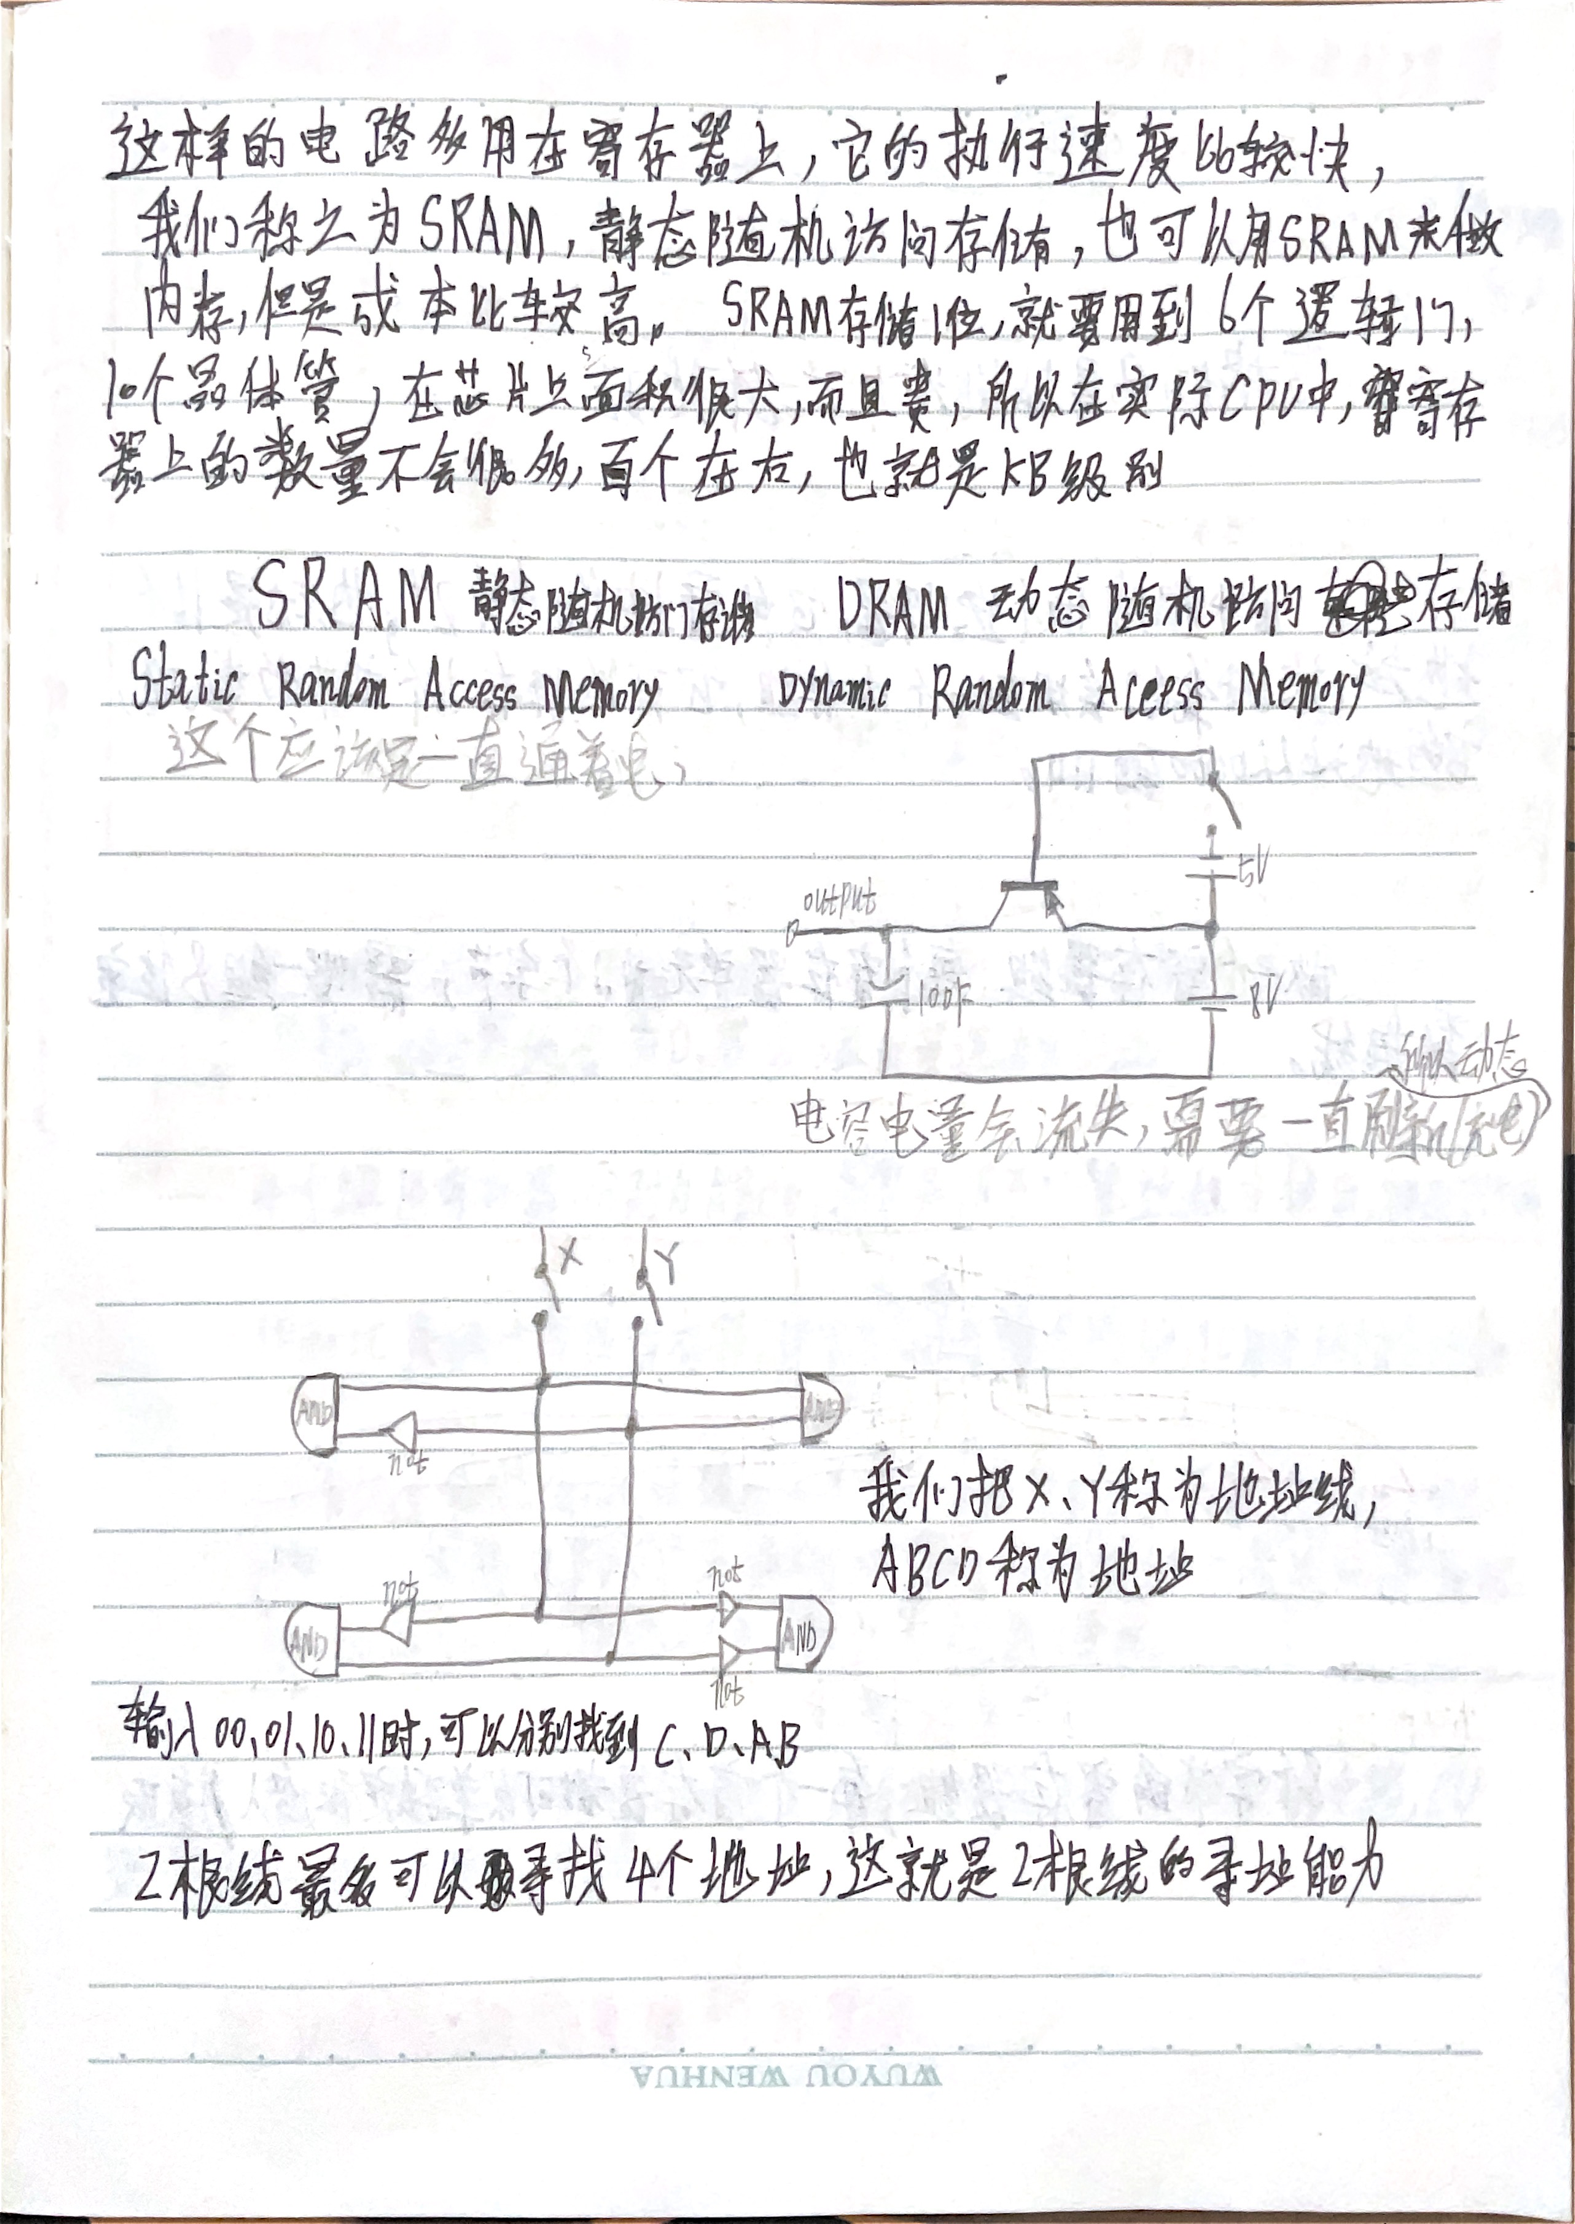 这样的电路多用在寄存器上,它的执行速度比较快,
我们称之为SRAM,静态随机访问存储,也可以用SRAM来做
内存,但是成本比较高。 SRAM存储1位,就要用到6个逻辑门,
10个晶体管,在芯片上面积很大,而且贵,所以在实际CPU中,寄存
器上的数量不会很多,百个左右,也就是KB级别
SRAM 静态随机访问存储 DRAM 动态随机访问存储
Static Random Access Memory Dynamic Random Access Memory
这个应该是一直通着电,
5V
output
100F
8V
所以动态
电容电量会流失,需要一直刷新(充电)
X Y
AND AND
not
我们把X、Y称为地址线,
ABCD称为地址
not not
AND AND
not
输入00、01、10、11时,可以分别找到C、D、A、B
2根线最多可以寻找4个地址,这就是2根线的寻址能力
WUYOU WENHUA